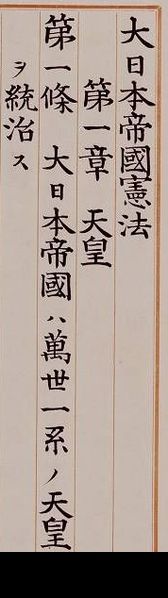 大日本帝國憲法
第一章 天皇
第一條 大日本帝國ハ萬世一系ノ天皇
ヲ統治ス